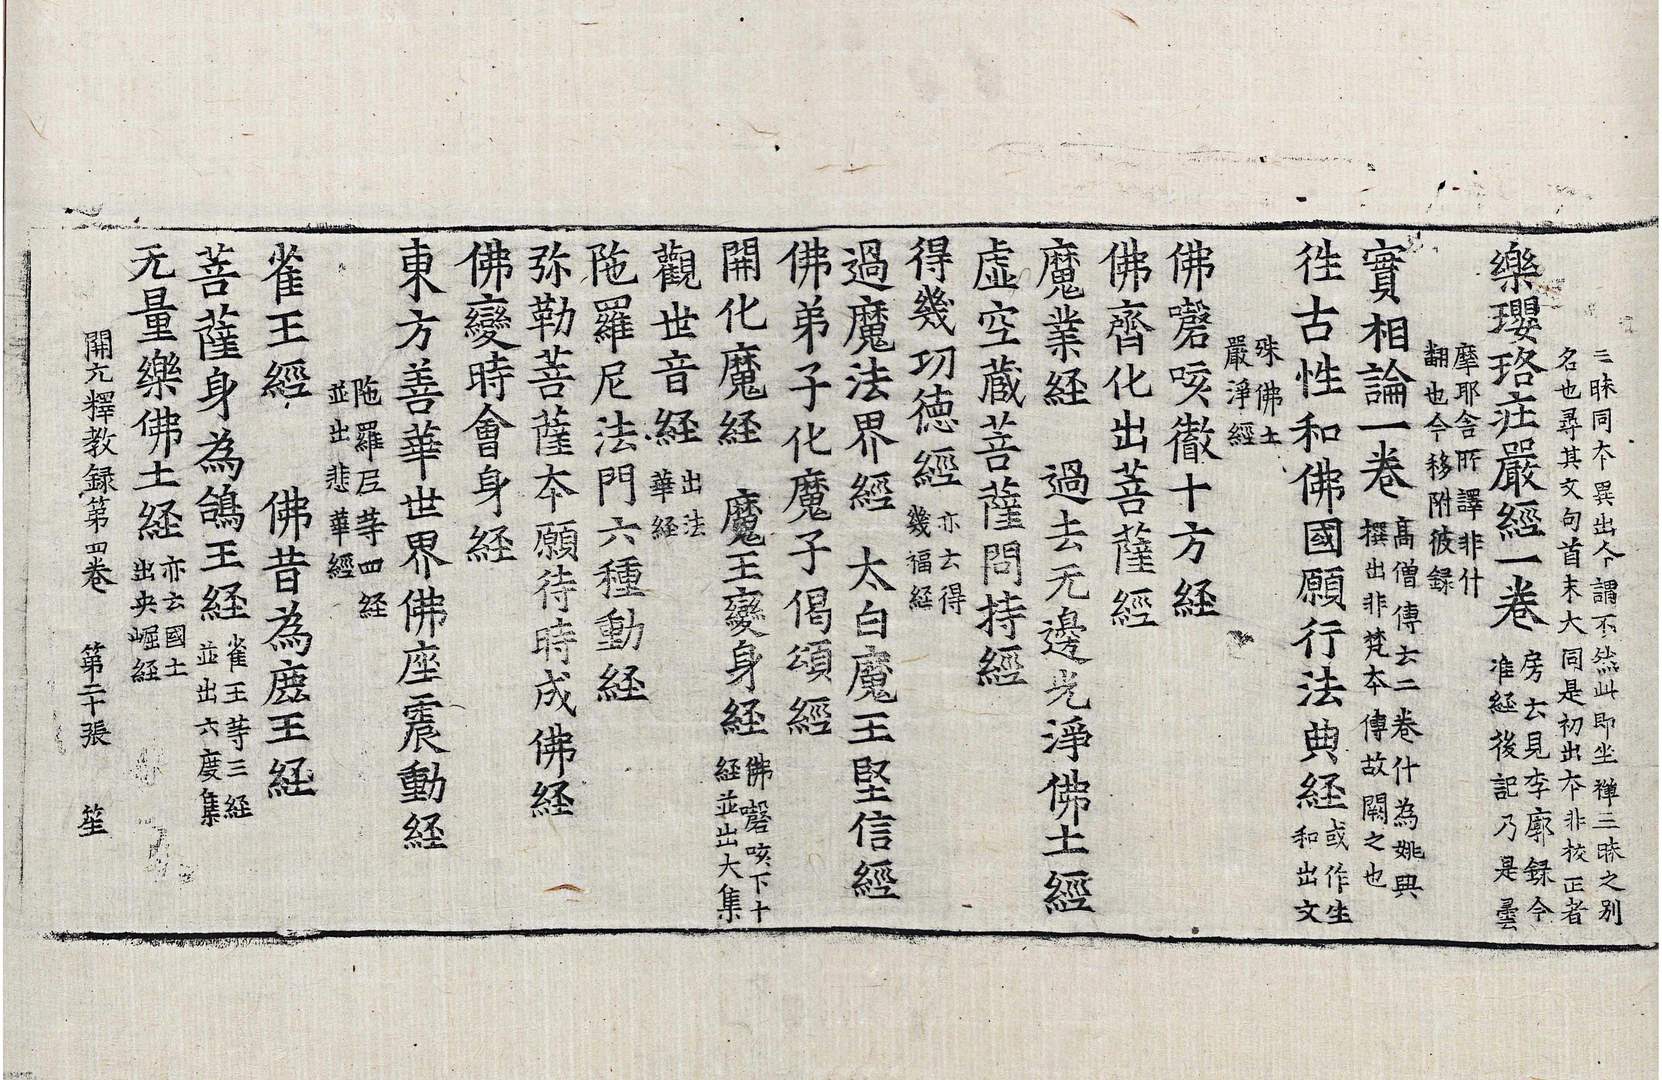 三昧同夲異出今謂不然此即坐禪三昧之别
名也尋其文句首末大同是初出夲非挍正者
樂瓔珞莊嚴經一卷 房云見李廓録今
准經後記乃是曇
摩耶舍所譯非什
翻也今移附彼録
實相論一卷 髙僧傳云二卷什為姚興
撰出非梵夲傳故闕之也
徃古性和佛國願行法典経 或作生
和出文
殊佛土
嚴淨經
佛謦咳徹十方経
佛齊化出菩薩經
魔業経 過去无邊光淨佛土經
虚空藏菩薩問持經
得幾功德經 亦云得
幾福経
過魔法界經 太白魔王堅信經
佛弟子化魔子偈頌經
開化魔経 魔王變身経 佛謦咳下十
経並出大集
觀世音経 出法
華経
陁羅尼法門六種動経
弥勒菩薩夲願待時成佛経
佛變時會身経
東方善華世界佛座震動経
陁羅尼等四経
並出悲華經
雀王經 佛昔為鹿王経
菩薩身為鴿王経 雀王等三経
並出六度集
无量樂佛土経 亦云國土
出央崛経
開元釋教録第四卷 第二十張 笙